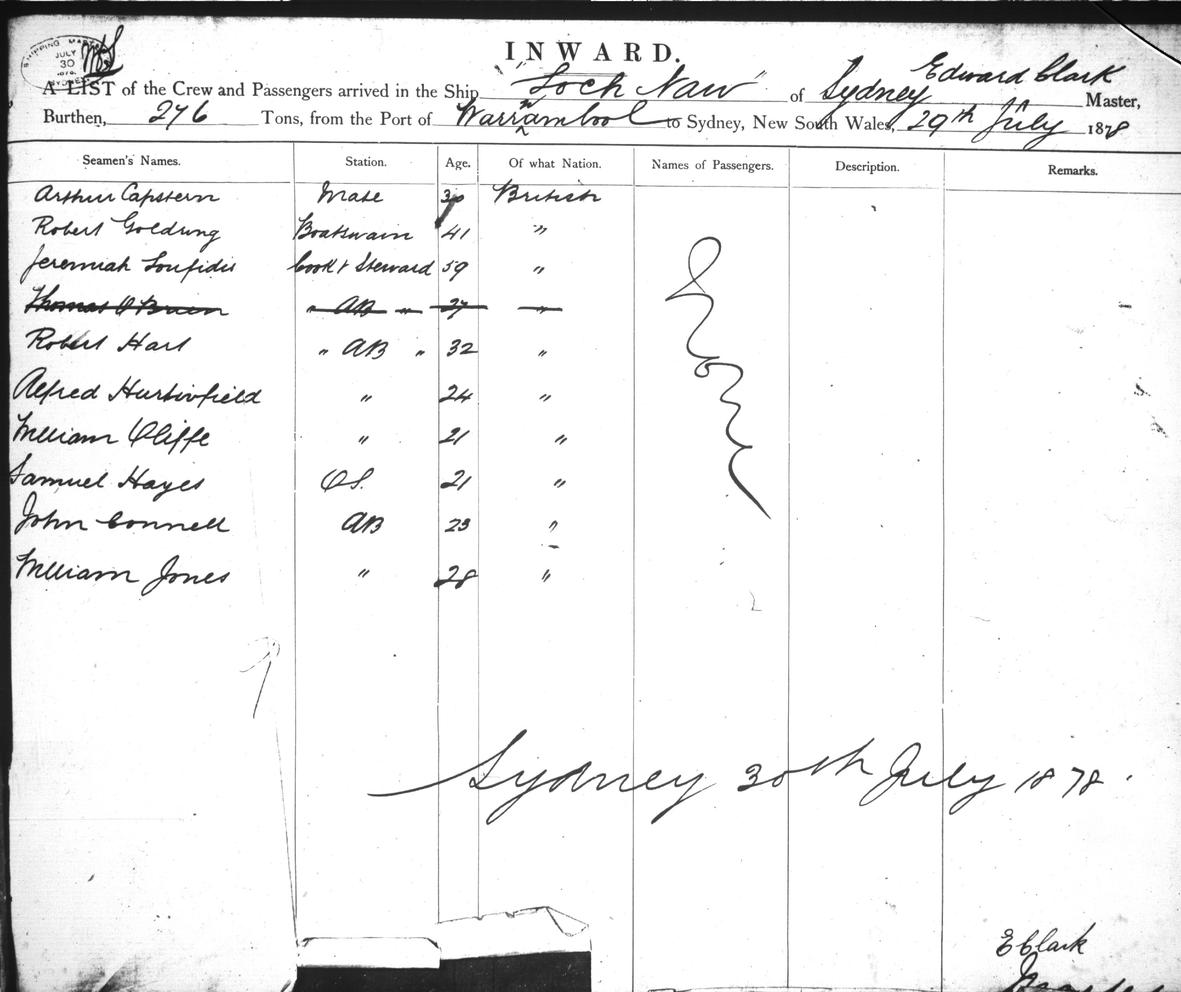 SHIPPING MAST
JULY
30
1878
SYDNEY
INWARD.
A LIST of the Crew and Passengers arrived in the Ship "Loch Naw" of Sydney Edward Clark Master,
Burthen, 276 Tons, from the Port of Warrnambool to Sydney, New South Wales, 29th July 1878
Seamen's Names. Station. Age. Of what Nation. Names of Passengers. Description. Remarks.
Arthur Capstern Mate 30 British
Robert Goldring Boatswain 41 "
Jeremiah Cook & Steward 59 "
Thomas O Brien " AB " 27 "
Robert Hart " AB " 32 "
Alfred " 24 "
William Cliffe " 21 "
Samuel Hayes OS. 21 "
John Connell AB 23 "
William Jones " 28 "
None
Sydney 30th July 1878.
E Clark